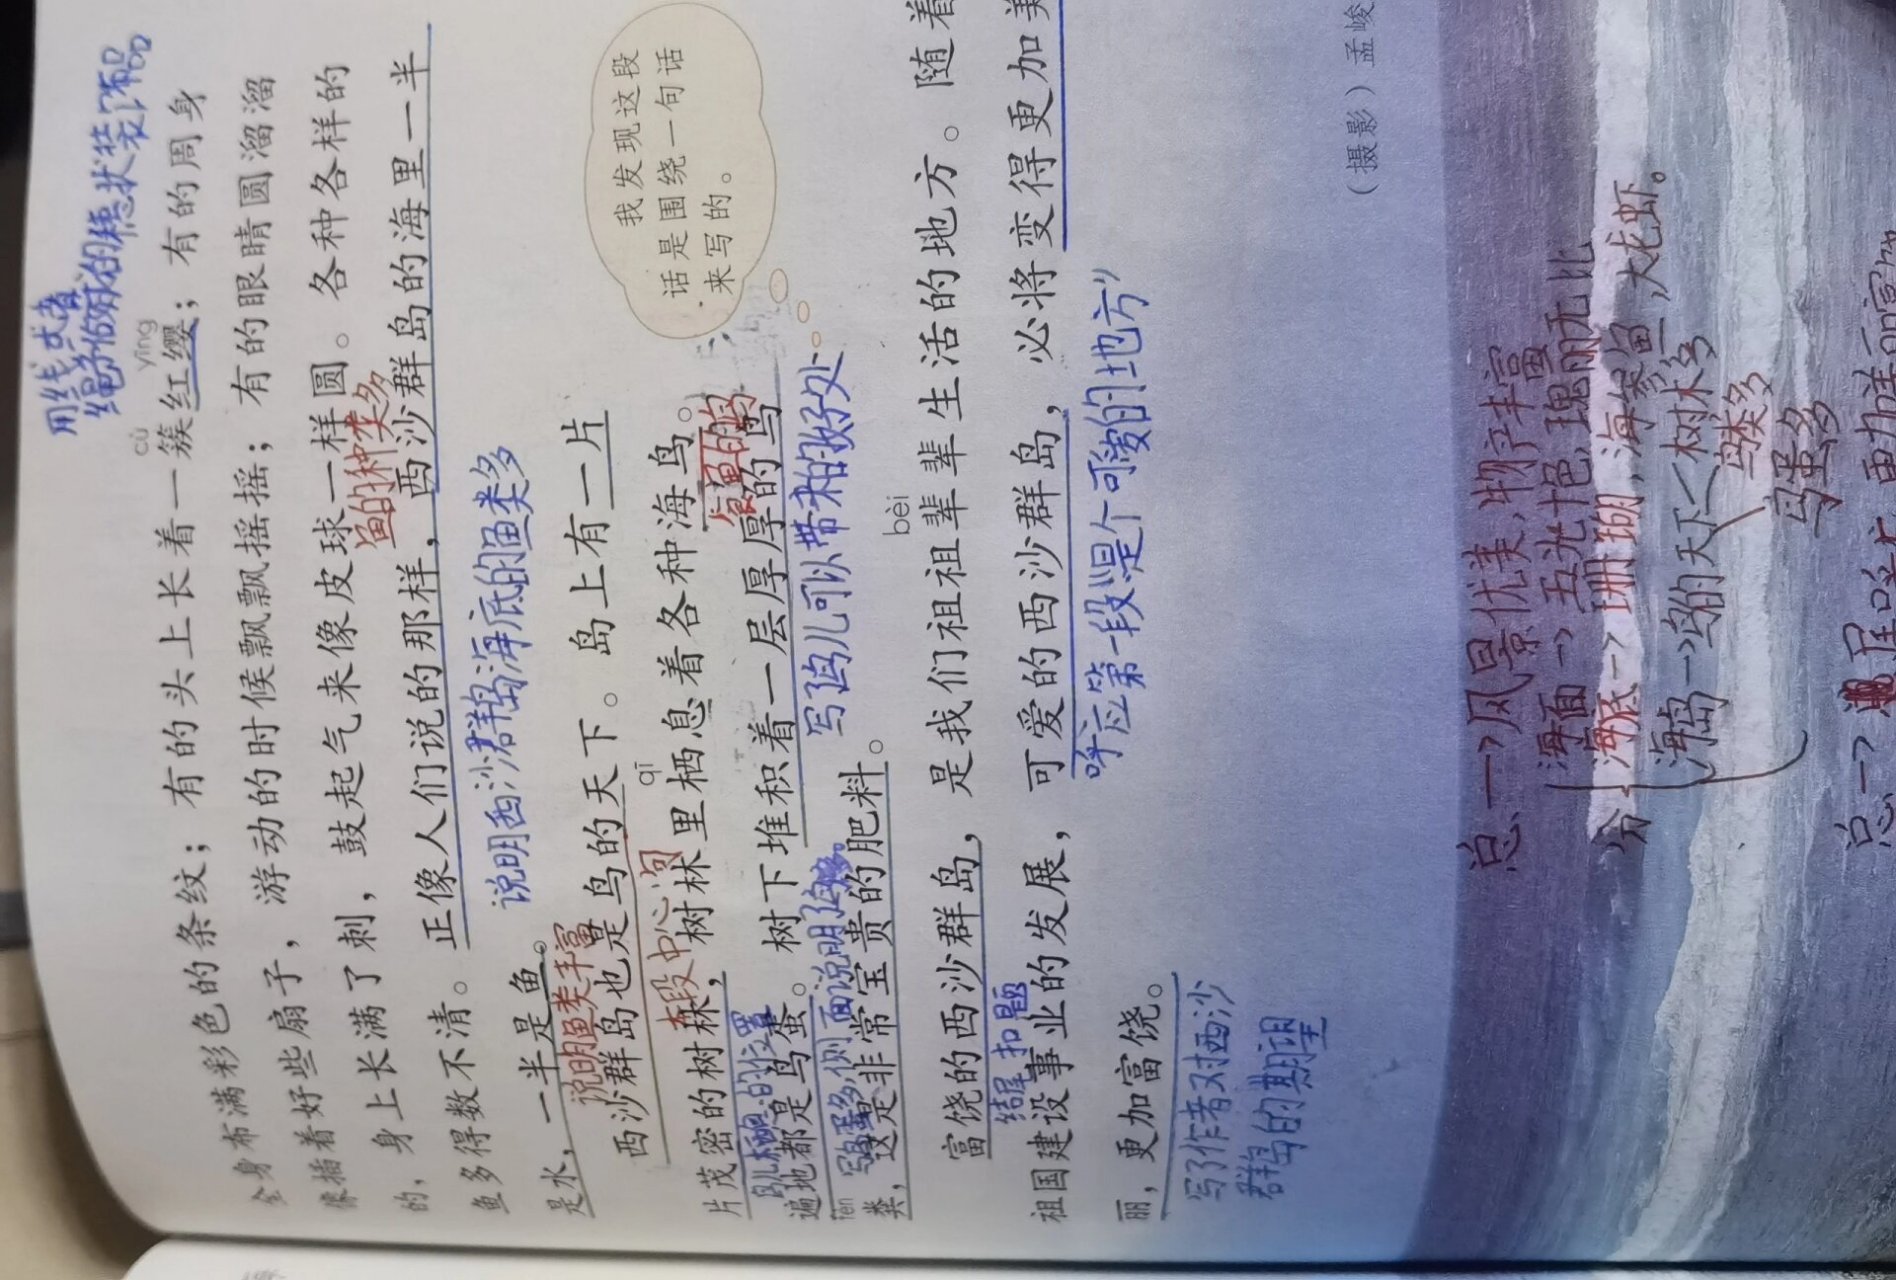 用线或者
绳子做的穗状装饰品
cù yīng
全身布满彩色的条纹；有的头上长着一簇红缨；有的周身
像插着好些扇子，游动的时候飘飘摇摇；有的眼睛圆溜溜
的，身上长满了刺，鼓起气来像皮球一样圆。各种各样的
鱼的种类多
鱼多得数不清。正像人们说的那样，西沙群岛的海里一半
说明西沙群岛海底的鱼类多
是水，一半是鱼。
说明鱼类丰富
西沙群岛也是鸟的天下。岛上有一片
本段中心句
qī
片茂密的树林，树林里栖息着各种海鸟。
鸟儿栖息的位置
遍地都是鸟蛋。树下堆积着一层厚厚的鸟
写鸟蛋多，侧面说明了
写鸟儿可以带来的好处
fèn
粪，这是非常宝贵的肥料。
我发现这段
话是围绕一句话
来写的。
bèi
富饶的西沙群岛，是我们祖祖辈辈生活的地方。随着
结尾扣题
祖国建设事业的发展，可爱的西沙群岛，必将变得更加美
呼应第一段“是个可爱的地方”
丽，更加富饶。
写了作者对西沙
群岛的期望
（摄影）孟峻
总→风景优美，物产丰富
分
海面→五光十色，瑰丽无比
海底→珊瑚，海参，鱼，大龙虾。
海岛→鸟的天下
树木多
鸟类多
鸟蛋多
总→